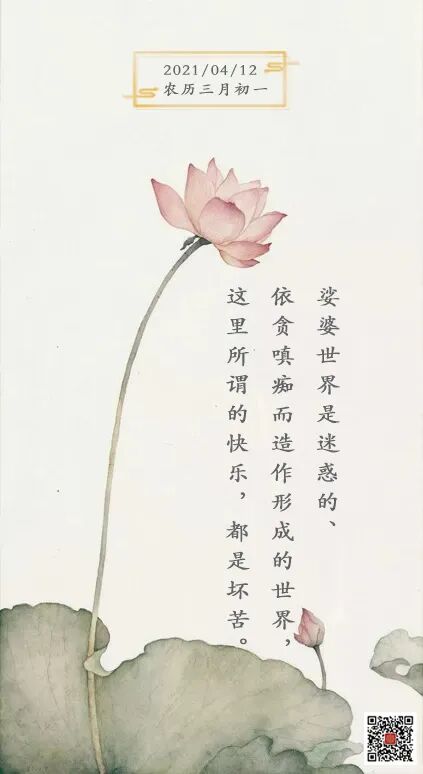 2021/04/12
农历三月初一
娑婆世界是迷惑的、
依贪嗔痴而造作形成的世界，
这里所谓的快乐，都是坏苦。